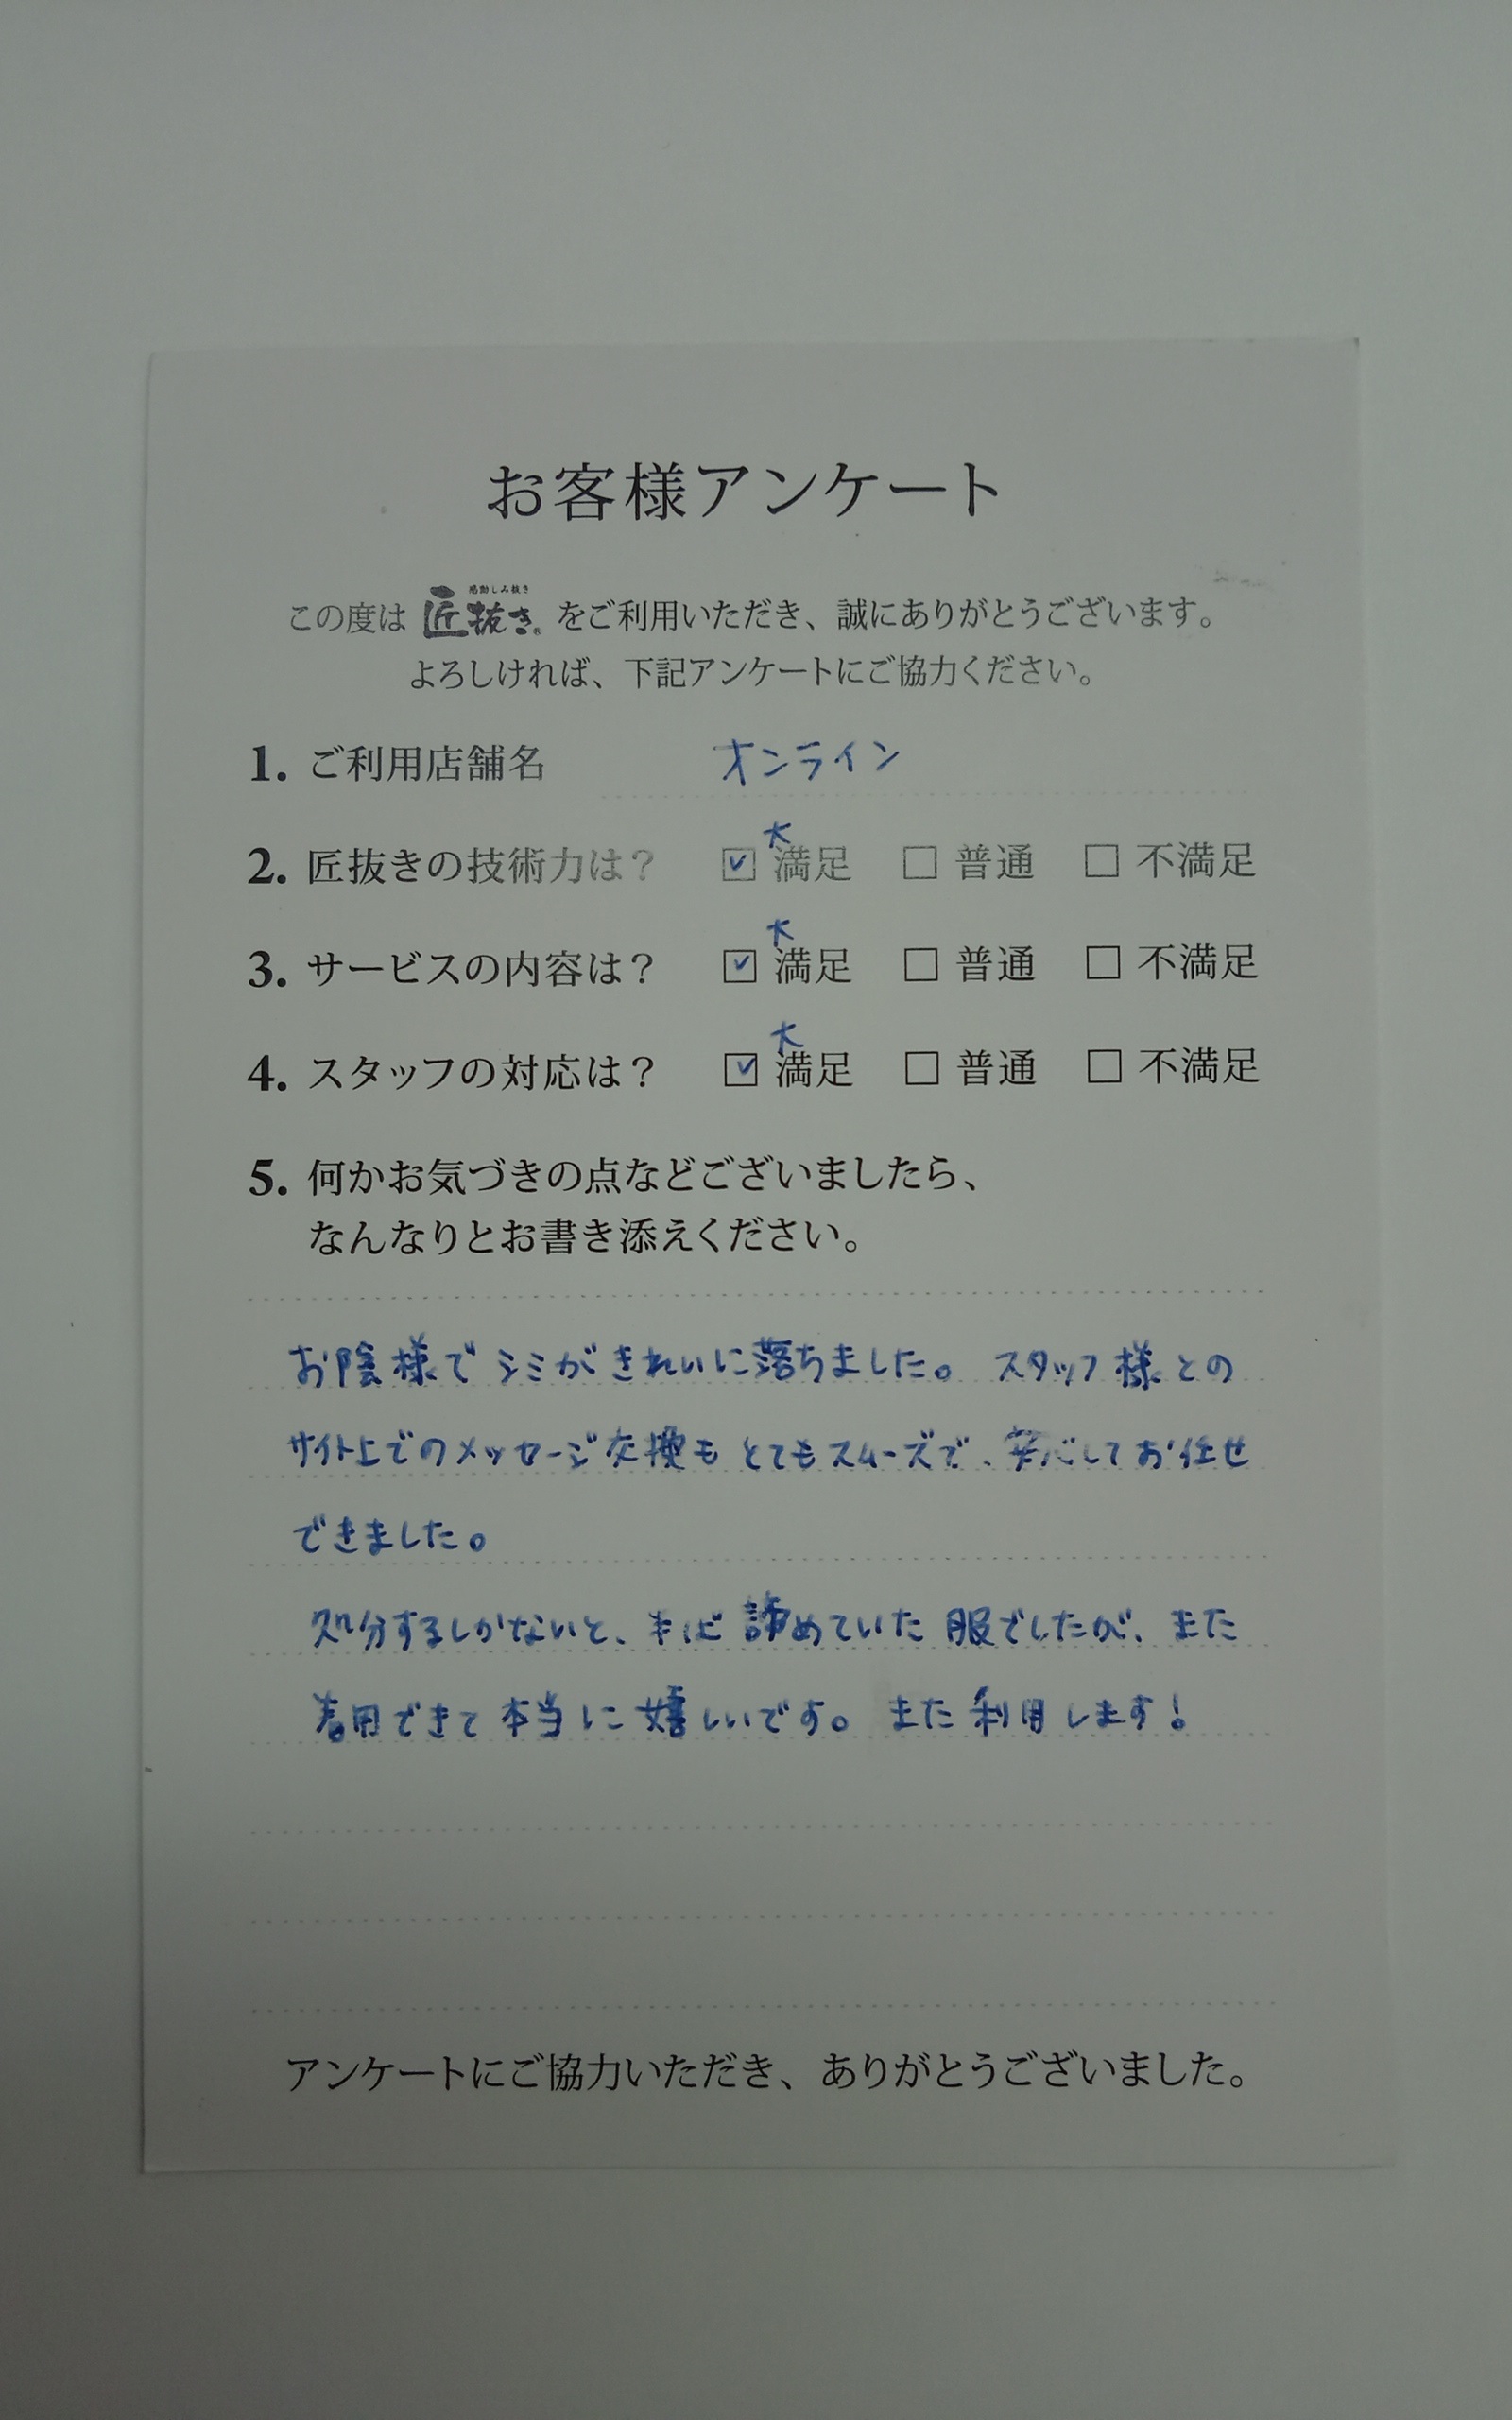 お客様アンケート
感動しみ抜き
この度は 匠抜き® をご利用いただき、誠にありがとうございます。
よろしければ、下記アンケートにご協力ください。
1. ご利用店舗名 オンライン
2. 匠抜きの技術力は？ ☑ 大満足 □ 普通 □ 不満足
3. サービスの内容は？ ☑ 大満足 □ 普通 □ 不満足
4. スタッフの対応は？ ☑ 大満足 □ 普通 □ 不満足
5. 何かお気づきの点などございましたら、
なんなりとお書き添えください。
お陰様でシミがきれいに落ちました。 スタッフ様との
サイト上でのメッセージ交換もとてもスムーズで、安心してお任せ
できました。
処分するしかないと、半ば諦めていた服でしたが、また
着用できて本当に嬉しいです。 また利用します！
アンケートにご協力いただき、ありがとうございました。